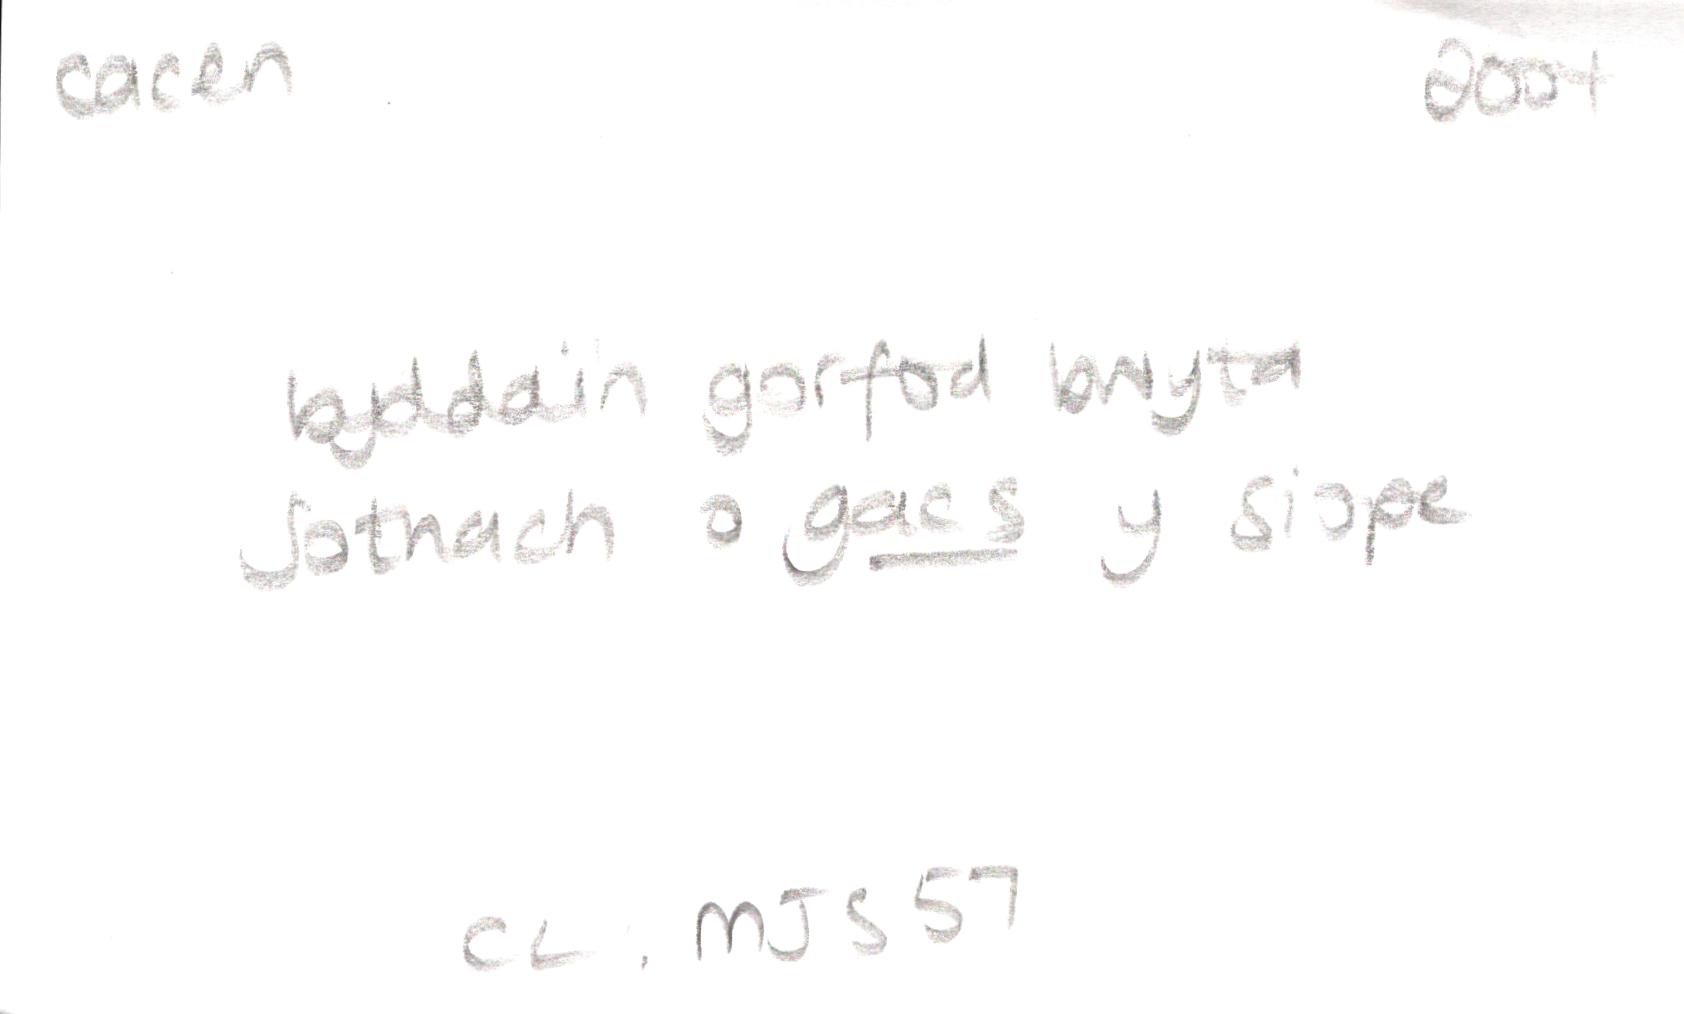 cacen 2004
byddain gorfod bwyta
jotnach o gacs y siope
CL, MJS 57